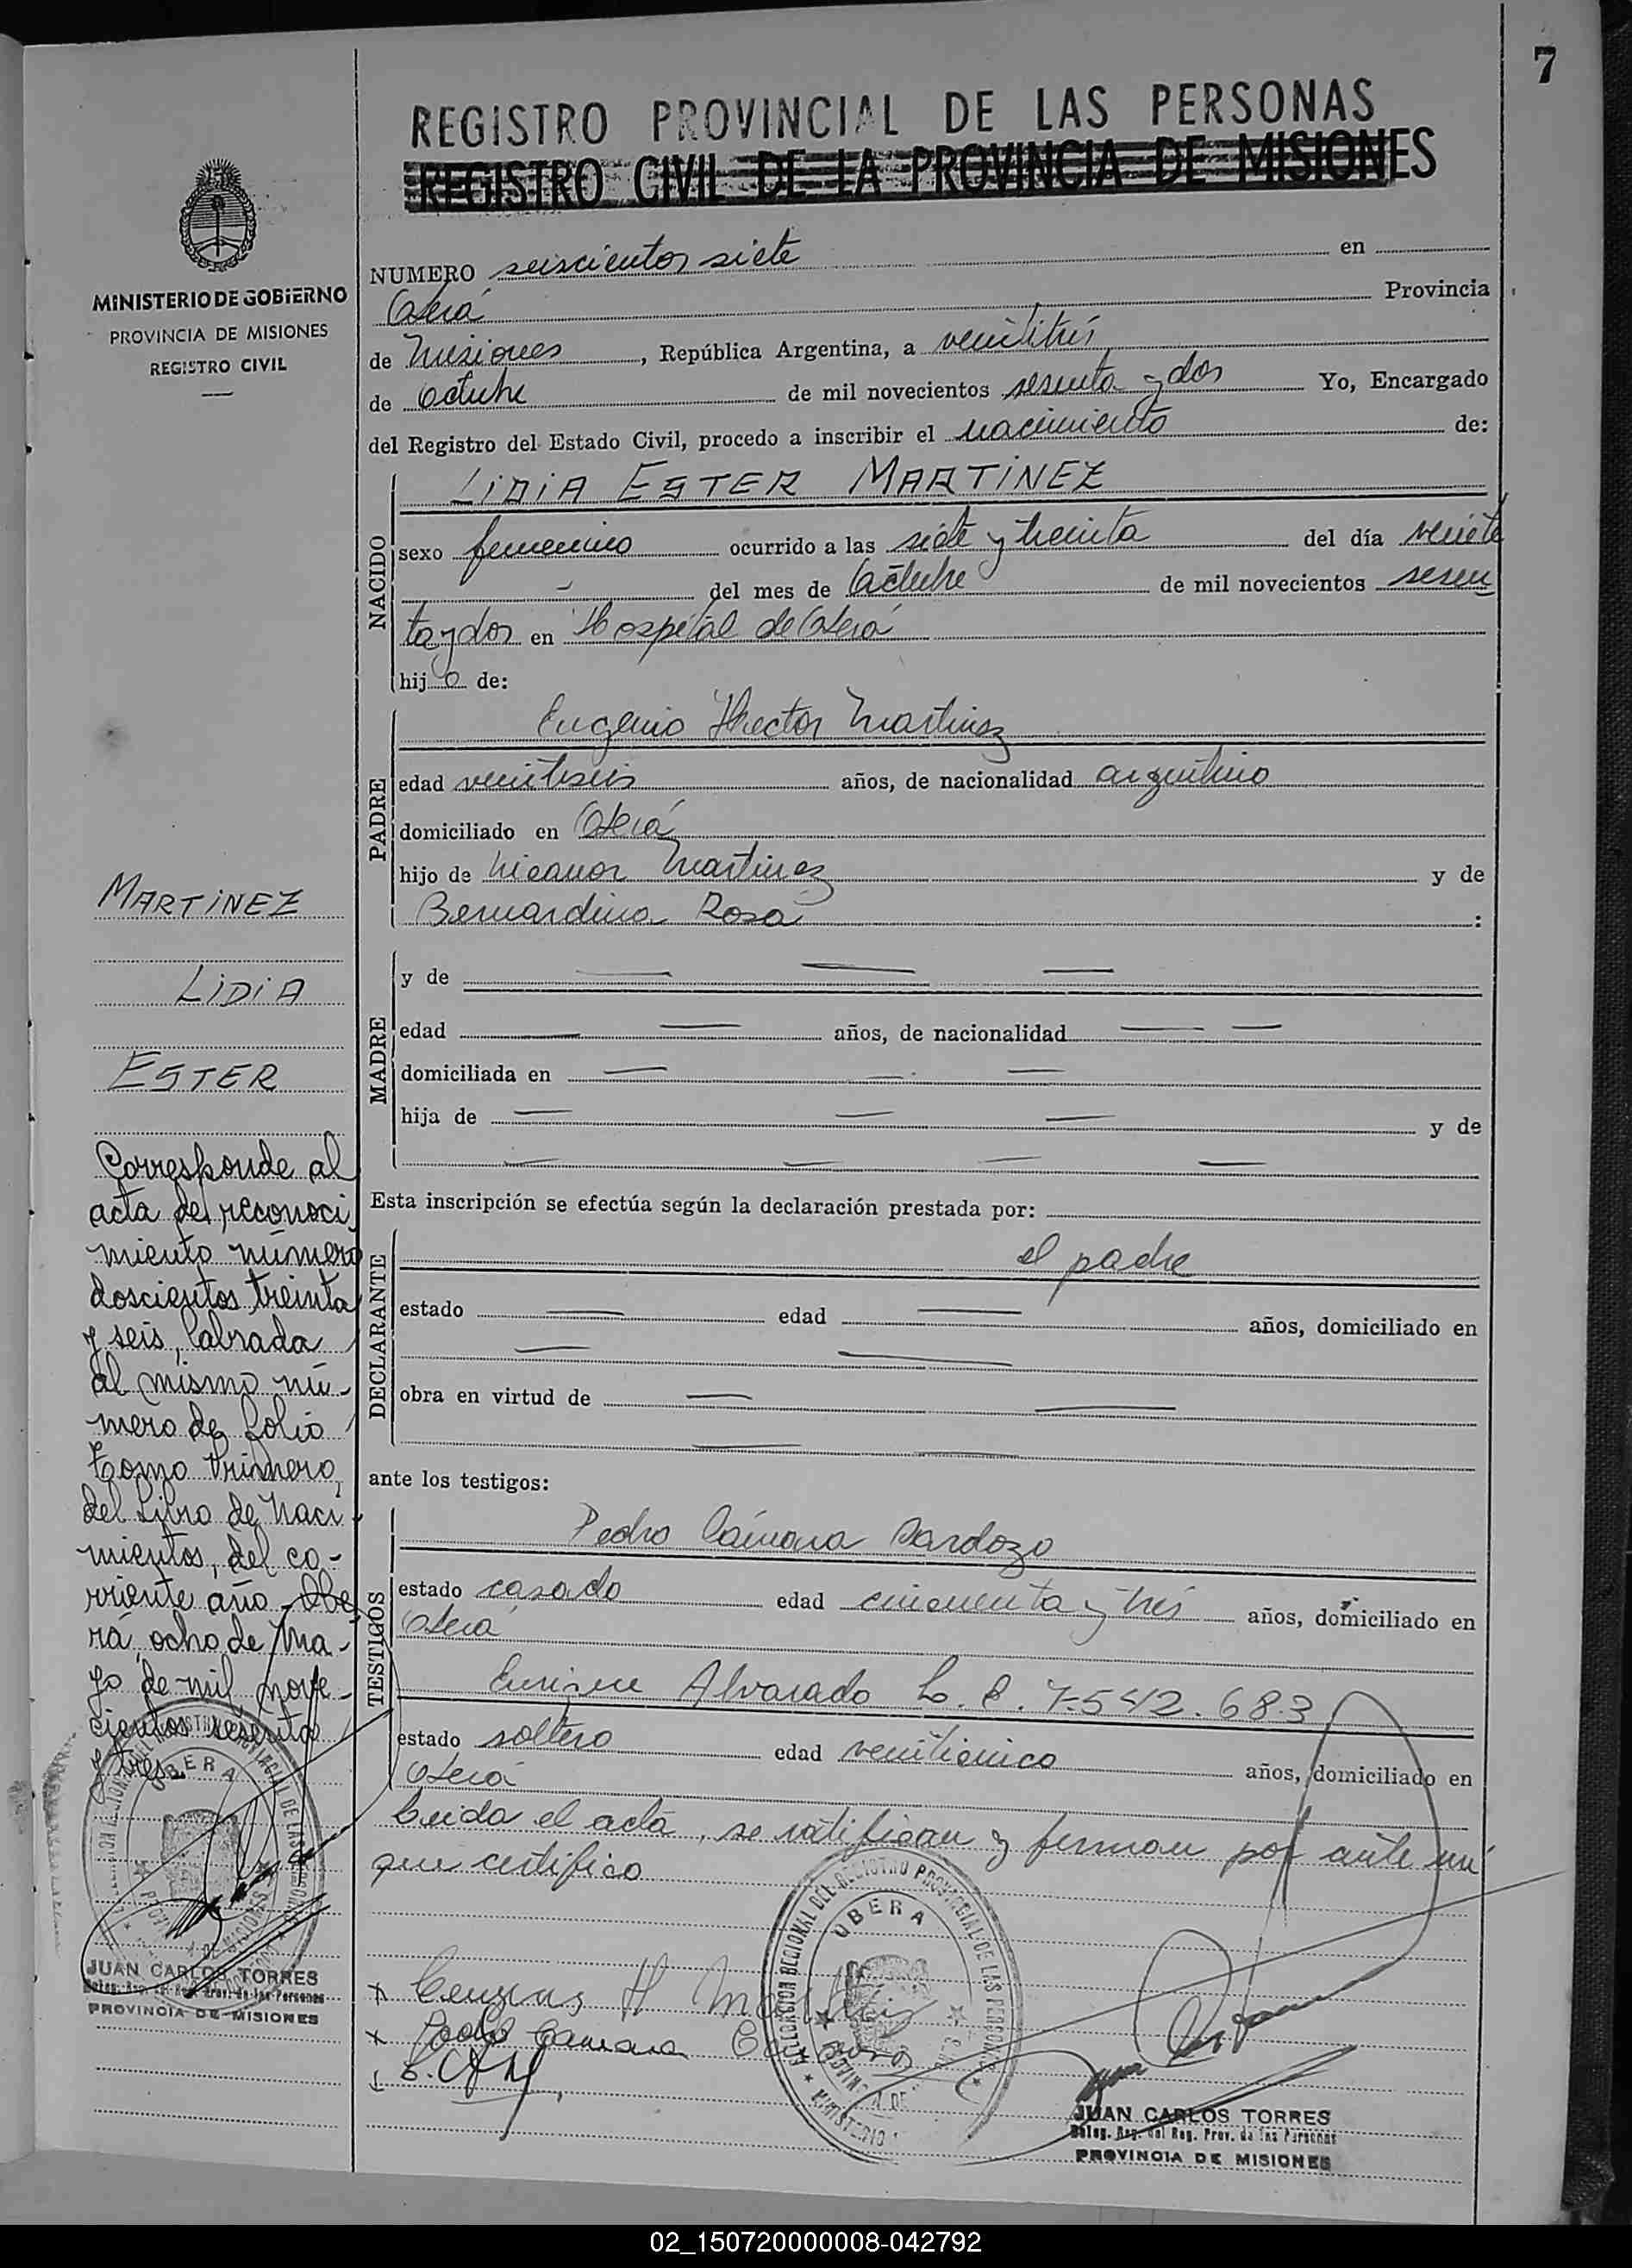 7
REGISTRO PROVINCIAL DE LAS PERSONAS
REGISTRO CIVIL DE LA PROVINCIA DE MISIONES
MINISTERIO DE GOBIERNO
PROVINCIA DE MISIONES
REGISTRO CIVIL
NUMERO seiscientos siete en
Oberá Provincia
de Misiones, República Argentina, a veintitrés
de Octubre de mil novecientos sesenta y dos Yo, Encargado
del Registro del Estado Civil, procedo a inscribir el nacimiento de:
NACIDO
LIDIA ESTER MARTINEZ
sexo femenino ocurrido a las siete y treinta del día veinte
del mes de Octubre de mil novecientos sesen
ta y dos en Hospital de Oberá
hija de:
PADRE
Eugenio Hector Martinez
edad veintiseis años, de nacionalidad argentino
domiciliado en Oberá
hijo de Nicanor Martinez y de
Bernardina Rosa :
MADRE
y de
edad años, de nacionalidad
domiciliada en
hija de y de
Esta inscripción se efectúa según la declaración prestada por:
DECLARANTE
el padre
estado edad años, domiciliado en
obra en virtud de
ante los testigos:
TESTIGOS
Pedro Cámara Cardozo
estado casado edad cincuenta y tres años, domiciliado en
Oberá
Enrique Alvarado L. E. 7.542.683
estado soltero edad veinticinco años, domiciliado en
Oberá
Leida el acta, se ratifican y firman por ante mi
que certifico
MARTINEZ
LIDIA
ESTER
Corresponde al
acta de reconoci
miento número
doscientos treinta
y seis, labrada
al mismo nú-
mero de folio
Tomo Primero,
del Libro de Naci
mientos, del co-
rriente año. Obe
rá, ocho de Ma-
yo de mil nove-
cientos sesenta
y tres
OBERA
JUAN CARLOS TORRES
Deleg. Reg. del Reg. Prov. de las Personas
PROVINCIA DE MISIONES
DELEGACION REGIONAL DEL REGISTRO PROVINCIAL DE LAS PERSONAS
OBERA
H Martinez
Pedro Camara
JUAN CARLOS TORRES
Deleg. Reg. del Reg. Prov. de las Personas
PROVINCIA DE MISIONES
02_150720000008-042792